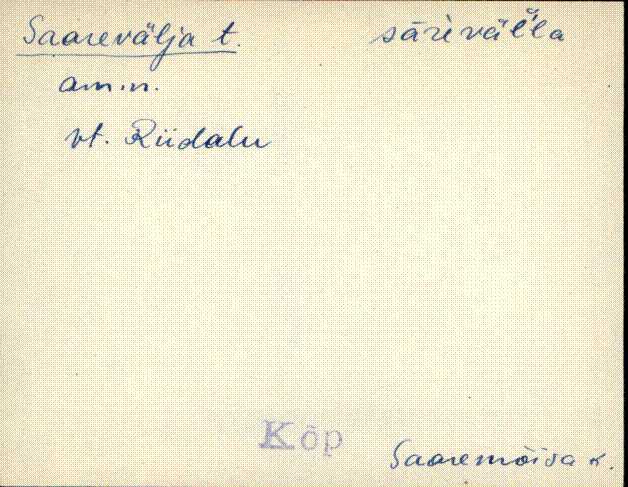 Saarevälja t. särivälla
am.n.
vt. Riidalu
Kõp
Saaremõisa k.